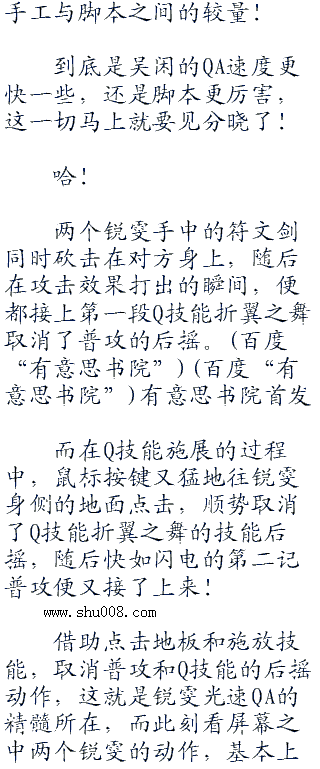 手工与脚本之间的较量！
到底是吴闲的QA速度更
快一些，还是脚本更厉害，
这一切马上就要见分晓了！
哈！
两个锐雯手中的符文剑
同时砍击在对方身上，随后
在攻击效果打出的瞬间，便
都接上第一段Q技能折翼之舞
取消了普攻的后摇。(百度
“有意思书院”)(百度“有
意思书院”)有意思书院首发
而在Q技能施展的过程
中，鼠标按键又猛地往锐雯
身侧的地面点击，顺势取消
了Q技能折翼之舞的技能后
摇，随后快如闪电的第二记
普攻便又接了上来！
www.shu008.com
借助点击地板和施放技
能，取消普攻和Q技能的后摇
动作，这就是锐雯光速QA的
精髓所在，而此刻看屏幕之
中两个锐雯的动作，基本上